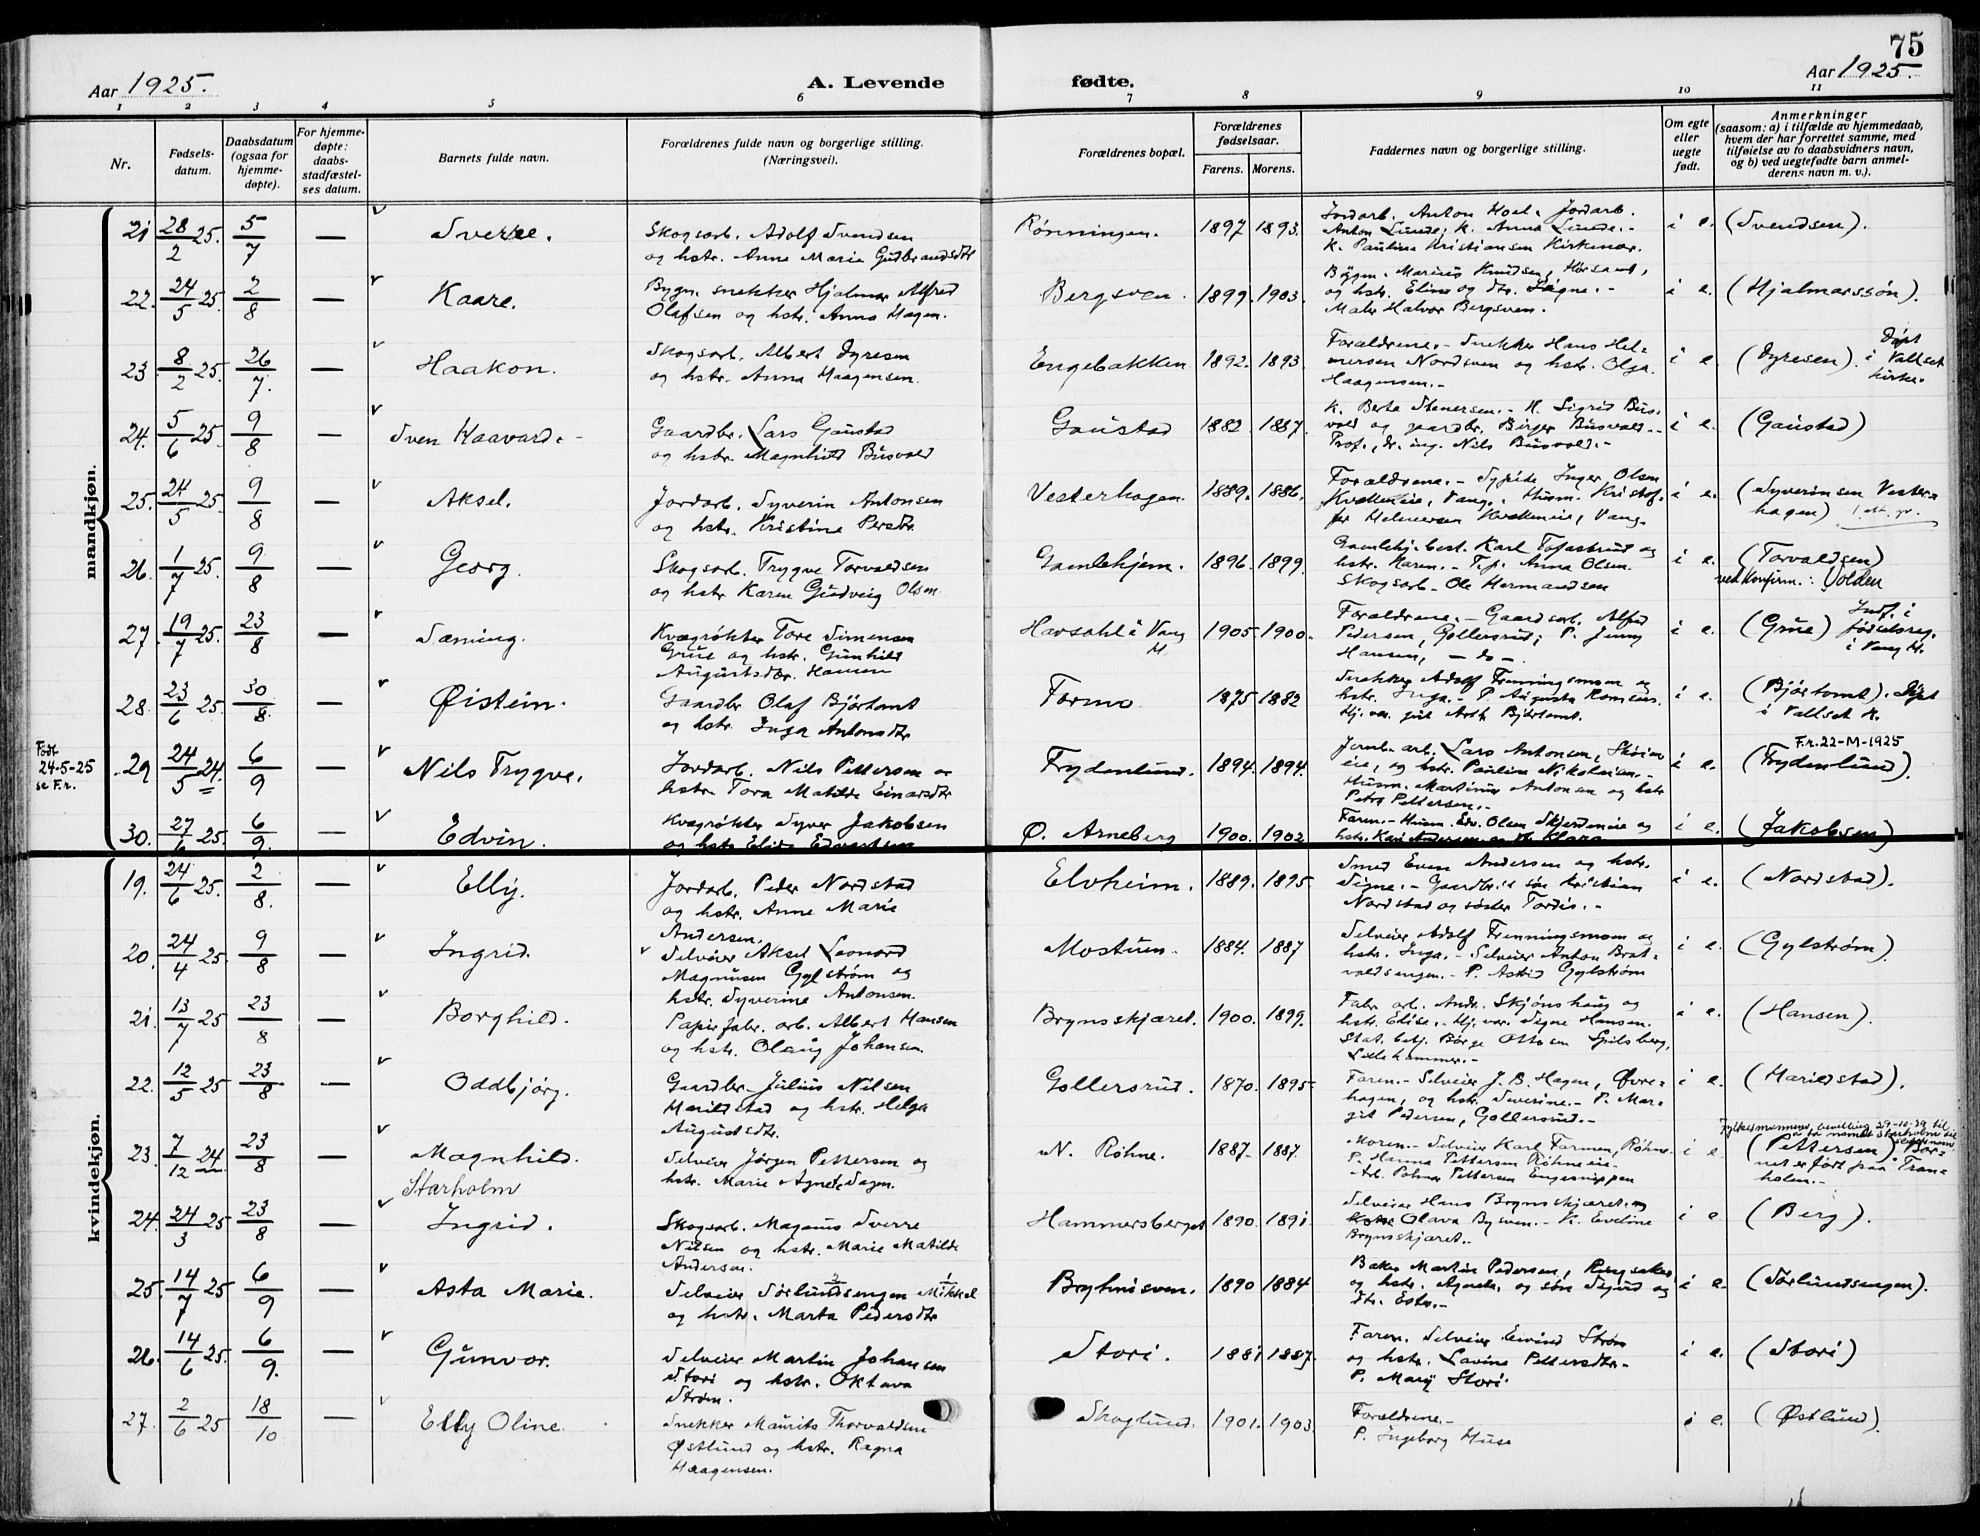 75
Aar 1925. A. Levende fødte. Aar 1925.
1 2 3 4 5 6 7 8 9 10 11
Nr.
Fødsels-
datum.
Daabsdatum
(ogsaa for
hjemme-
døpte).
For hjemme-
døpte:
daabs-
stadfæstel-
ses datum.
Barnets fulde navn.
Forældrenes fulde navn og borgerlige stilling.
(Næringsvei).
Forældrenes bopæl.
Forældrenes
fødselsaar.
Farens. Morens.
Faddernes navn og borgerlige stilling.
Om egte
eller
uegte
født.
Anmerkninger
(saasom: a) i tilfælde av hjemmedaab,
hvem der har forrettet samme, med
tilføielse av to daabsvidners navn,
og b) ved uegtefødte barn anmel-
derens navn m. v.).
mandkjøn.
21 28/2 25. 5/7 — Sverre. Skogsarb. Adolf Svendsen
og hstr. Anne Marie Gudbrandsdtr
Rønningen. 1897 1893. Jordarb. Anton Hoel. Jordarb.
Anton Lunde; K. Anna Lunde.-
K. Paulina Kristiansen Kirkenær.
i e. (Svendsen).
22. 24/5 25. 2/8 — Kaare. Bygn. snekker Hjalmar Alfred
Olafsen og hstr. Anna Hagen.
Bergsven. 1899. 1903. Bygm. Marius Knudsen, Hørsand,
og hstr. Eline og dtr. Signe.-
Maler Halvor Bergsven.
i e. (Hjalmarssøn).
23. 8/2 25. 26/7. — Haakon. Skogsarb. Albert Dyresen
og hstr. Anna Haagensen.
Engebakken 1892. 1893. Forældrene.- Snekker Hans Hel-
mersen Nordsven og hstr. Olga
Haagensen.-
i e. (Dyresen). Døpt
i Vallset
kirke.
24. 5/6 25. 9/8 — Sven Haavard.- Gaardbr. Lars Gaustad
og hstr. Magnhild Busvold
Gaustad 1882. 1887. K. Berte Stenersen.- K. Sigrid Bus-
vold og gaardbr. Birger Busvold.-
Prof., dr. ing. Nils Busvold.-
i e. (Gaustad)
25. 24/5 25. 9/8 — Aksel. Jordarb. Syverin Antonsen
og hstr. Kristine Persdtr
Vesterhagen. 1889. 1886. Forældrene.- Sypike Inger Olsen
Kvekeneie, Vang., Husm. Kristof-
fer Helmersen Kvekeneie, Vang.
i e. (Syverinsen Vester-
hagen)
26. 1/7 25. 9/8 — Georg. Skogsarb. Trygve Torvaldsen
og hstr Karen Gudveig Olsen.
Gamlehjem. 1896. 1899. Gamlehj. best. Karl Tofastrud og
hstr. Karen.- T. p. Anna Olsen.
Skogsarb. Ole Hermandsen
i e. (Torvaldsen)
ved Konfirm.: Volden
27. 19/7 25. 23/8 — Sæming. Kvægrøkter Tore Simensen
Grue og hstr. Gunhild
Augustsdtr. Hansen
Havsahl i Vang
H. 1905. 1900. Forældrene.- Gaardsarb. Alfred
Pedersen, Gollersrud; P. Jenny
Hansen, - do -.
i e. (Grue) Indf. i
fødselsreg.
i Vang H.
28. 23/6 25. 30/8. — Øistein. Gaardbr Olaf Bjørtomt
og hstr. Inga Antonsdtr
Formo 1875 1882 Snekker Adolf Frenningsmoen og
hstr. Inga.- P. Augusta
Hj. ver. gut Arth Bjørtomt.
i e. (Bjørtomt). Døpt
i Vallset K.
Født
24-5-25
se F.r.
29 24/5 24. 6/9 — Nils Trygve. Jordarb. Nils Pettersen og
hstr. Tora Matilde Einarsdtr
Frydenlund. 1894. 1894. Jernb. arb. Lars Antonsen, Skøien-
eie, og hstr. Pauline Nikolaisen.-
Husm. Martinus Antonsen og hstr
Petra Pettersen.-
i e. F.r. 22-M-1925
(Frydenlund).
30. 27/6 25. 6/9. — Edvin. Kvægrøkter Syver Jakobsen
og hstr. Elida Edvardsen
Ø. Arneberg 1900. 1902 Faren.- Husm. Edv. Olsen Skjerdeneie og
hstr. Kari Andersen og dtr Klara
i e. (Jakobsen)
kvindekjøn.
19. 24/6 25. 2/8. — Elly. Jordarb. Peder Nordstad
og hstr. Anne Marie
Andersen.
Elvheim. 1889. 1895. Smed Even Andersen og hstr.
Signe.- Gaardbr.s søn Kristian
Nordstad og søster Tordis.-
i e. (Nordstad).
20. 24/4 25. 9/8 — Ingrid. Selveier Aksel Leonard
Magnusen Gylstrøm og
hstr. Syverine Antonsen.
Mostuen. 1884. 1887 Selveier Adolf Frenningsmoen og
hstr. Inga.- Selveier Anton Brat-
voldsengen.- P. Astrid Gylstrøm
i e. (Gylstrøm)
21. 13/7 25 23/8 — Borghild. Papirfabr. arb. Albert Hansen
og hstr. Olaug Johansen.
Brynsskjæret. 1900. 1899. Fabr. arb. Andr. Skjønshaug og
hstr. Elise.- Hj. vær. Signe Hansen.
Stat. betj. Børge Ottosen Spilsberg,
Lillehammer.-
i e. (Hansen).
22. 12/5 25 23/8 — Oddbjørg. Gaardbr. Julius Nilsen
Harildstad og hstr. Helga
Augustsdtr.
Gollersrud. 1870. 1895- Faren.- Selveier J. B. Hagen, Øvre-
hagen, og hstr. Severine.- P. Mar-
git Pedersen, Gollersrud.-
i e. (Harildstad).
23. 7/12 24 23/8 — Magnhild.
Starholm
Selveier Jørgen Pettersen og
hstr. Marie Agnete Dagen.
N. Røhne. 1887- 1887. Moren.- Selveier Karl Farmen, Røhne.
P. Hanna Pettersen Røhneeie.-
Arb. Palmer Pettersen Engesnippen
i e. Fylkesmannens bevilling 29-10-39 til
å ta navnet Starholm til
slektsnavn
(Pettersen) Bar-
net er ført fra Tran-
holen.-
24. 24/3 25 23/8 — Ingrid. Skogsarb. Magnus Sverre
Nilsen og hstr. Marie Matilde
Andersen.
Hammersberget 1890. 1891. Selveier Hans Brynsskjæret og
hstr Olava Bysven.- K. Eveline
Brynsskjæret.-
i e. (Berg).
25. 14/7 25 6/9 — Asta Marie. Selveier Sørlundsengen Mikkel
og hstr. Marta Pedersdtr
Bryhnisven. 1890 1884 Baker Martin Pedersen, Ringsaker,
og hstr. Agnete, og søn Sigurd og
dtr. Ester.-
i e. (Sørlundsengen).
26. 14/6 25. 6/9. — Gunvor. Selveier Martin Johansen
Stori og hstr. Oktava
Strøm.
Stori. 1881 1887. Faren. Selveier Eivind Strøm
og hstr. Lavine Pettersdtr-
P. Mary Stori.
i e. (Stori)
27. 2/6 25 18/10 — Elly Oline. Snekker Maurits Thorvaldsen
Østlund og hstr. Ragna
Haagensen.
Skoglund. 1901. 1903. Forældrene.-
P. Ingeborg Huse
i e. (Østlund).